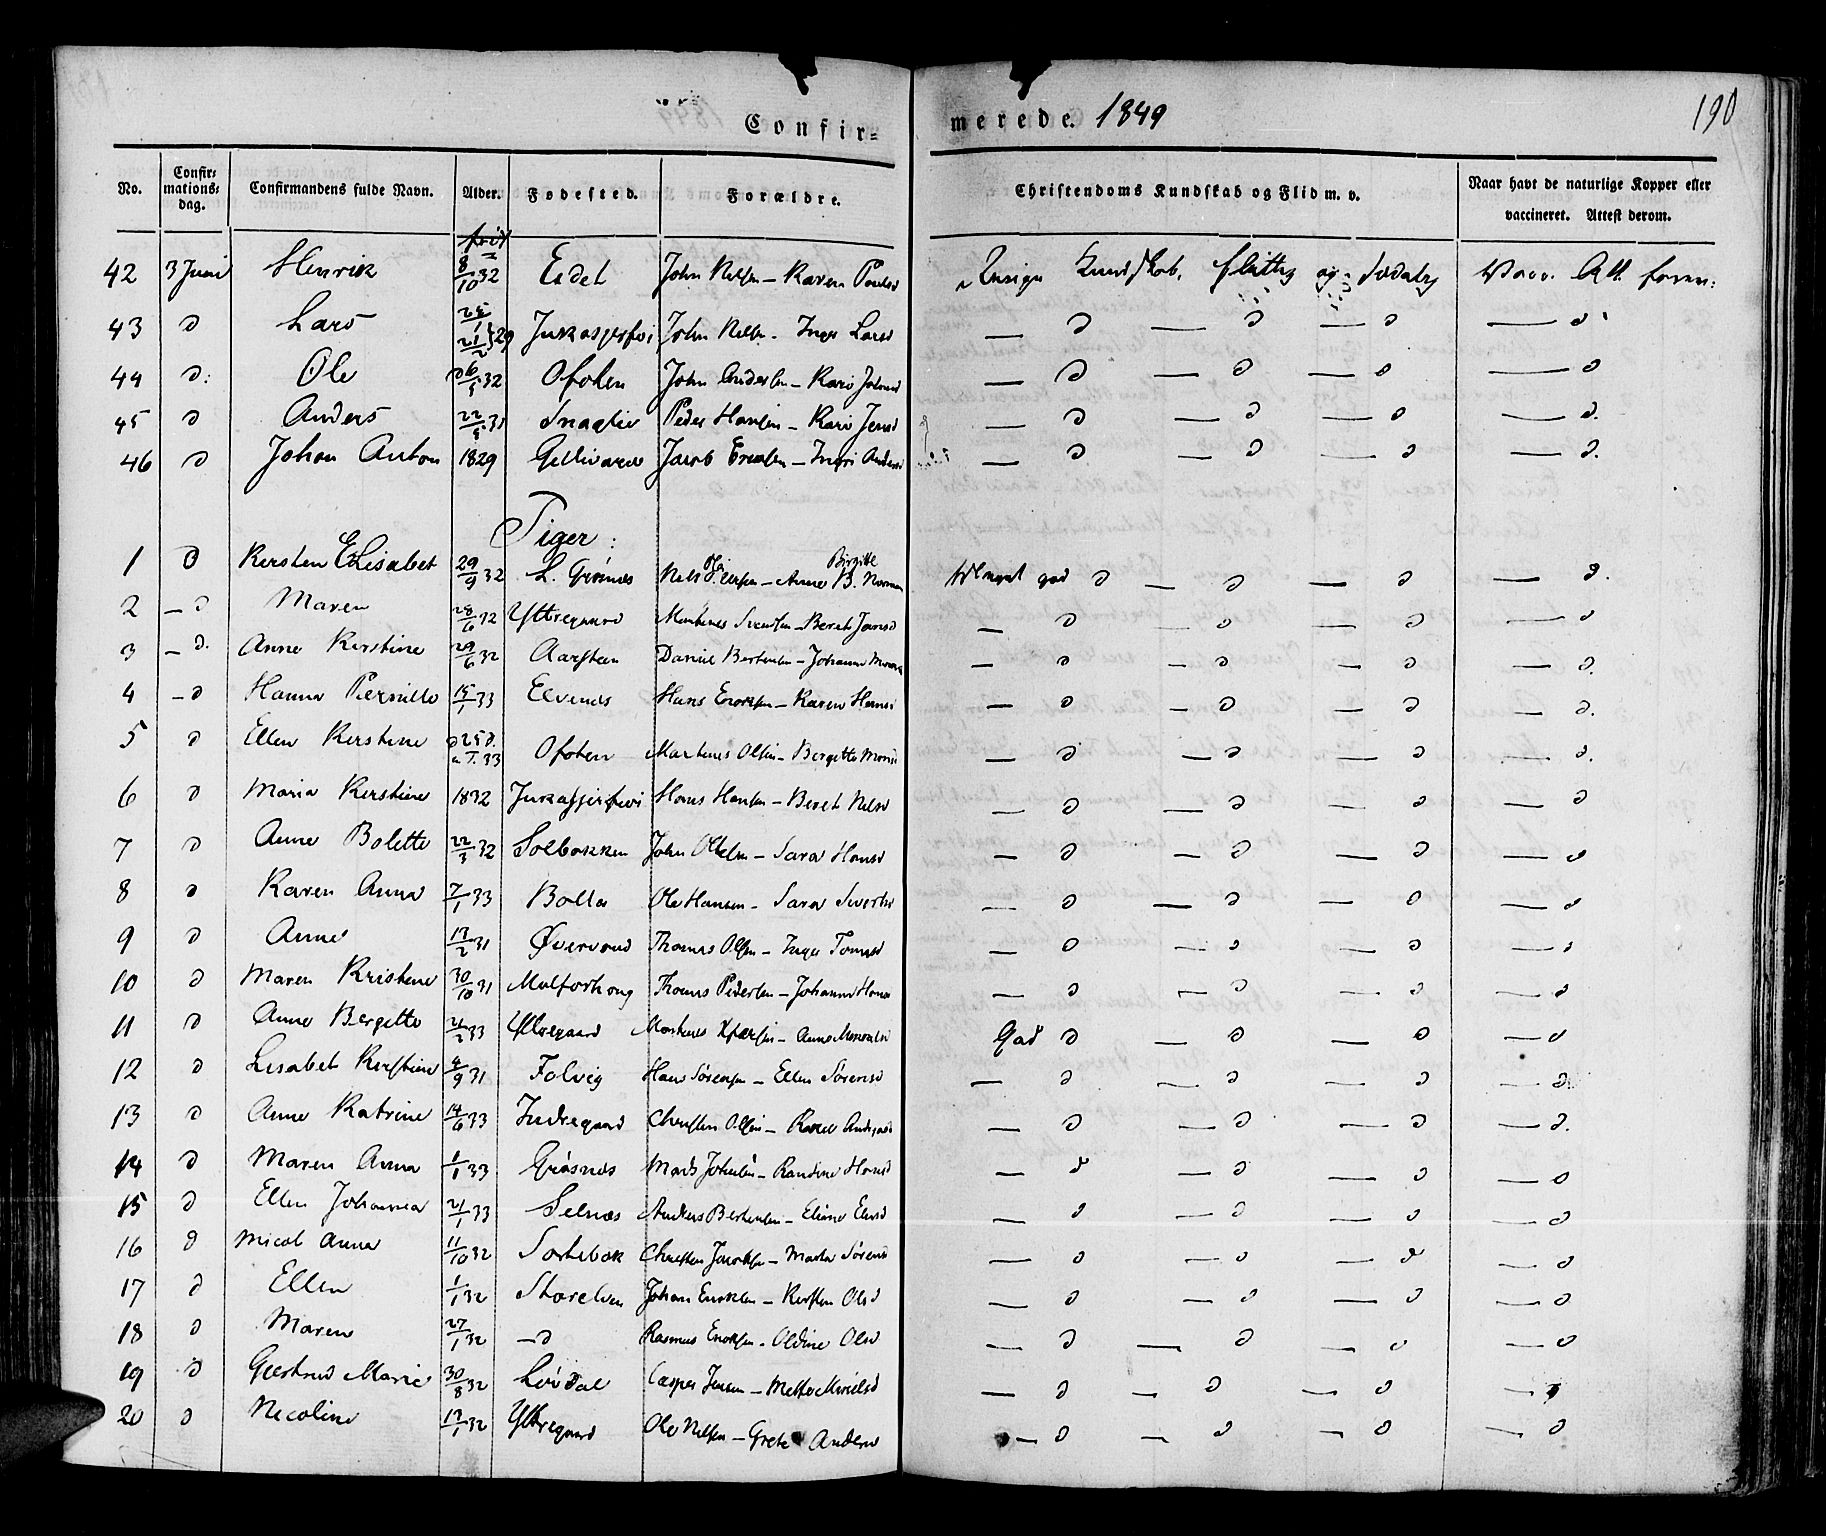 Confir-
merede. 1849
190
No.
Confir-
mations-
dag.
Confirmandens fulde Navn.
Alder.
Fødested.
Forældre.
Christendoms Kundskab og Flid m. v.
Naar havt de naturlige Kopper eller
vaccineret. Attest derom.
42 3 Juni Henrik 8/10 32 Eidet John Nilsen - Karen Kundskab, flittig og sædelig Vacc. Att.
43 d Lars 29 John Nilsen - Inger Larsd — d — d — d — d
44 d: Ole 32 Ofoten John Andersen - Kari — d — d — d — d
45 d Anders 22/5 31 Peder Hansen - Kari Jensd — d — d — d — d.
46 d Johan Anton 1829 Gellivara Jacob - Ingri Andersd — d — d — d — d.
Piger:
1 d Kersten Elisabet 29/9 32 L. Grønnes Nils - Anne B. Birgitte god d — d — d — d.
2 — d Maren 28/6 32 Yttregaard Svendsen - Beret — d — d — d — d
3 — d. Anne Kerstine 29/6 32 Aarsteen Daniel Bertelsen - Johanna — d — d — d — d.
4 — d Hanna Pernille 15/1 33 Elvenes Hans Enoksen - Karen Hansd — d — d — d — d.
5 d Ellen Kerstine 33 Ofoten Martines Olsen - Bergette — d — d — d — d.
6 d Maria Kerstine 1832 Hans Hansen - Beret Nilsd — d — d — d — d
7 d Anne Bolette 22/3 32 Solbakken John - Sara Hansd — d — d — d — d
8 d Karen Anna 7/1 33 Bolla Ole Hansen - Sara Sivertsd — d — d — d — d
9 d Anne 17/2 31 Thomas Olsen - Inger — d — d — d — d
10 d Maren Kristine 30/10 31 Thomas Pedersen - Johanna — d — d — d — d
11 d Anne Bergette 21/2 33 Yttregaard - Anne God d — d — d — d
12 d Lisabet Kerstine 4/9 31 Folvig Hans Sørensen - Ellen Sørensd — d — d — d — d.
13 d Anne Katrine 14/6 33 Indregaard Christen Olsen - — d — d — d — d.
14 d Maren Anna 1/1 33 Grøsnes Mads Johnsen - Randine Hansd — d — d — d — d
15 d Ellen Johanna 21/1 33 Selnæs Anders Bertelsen - — d — d — d — d
16 d Micol Anna 11/10 32 Christen Jacobsen - Marta Sørensd — d — d — d — d
17 d Ellen 1/1 32 Storelven Johan - Kersten Olsd — d — d — d — d
18 d Maren 27/1 32 — d Rasmus Enoksen - Oldine Olsd — d — d — d — d
19 d Gjertrud Marie 30/8 32 Løvdal Casper Jensen - Mette — d — d — d —
20 d Nicoline 17/1 32 Yttregaard Ole Nilsen - Grete Andersd — d — d — d — d